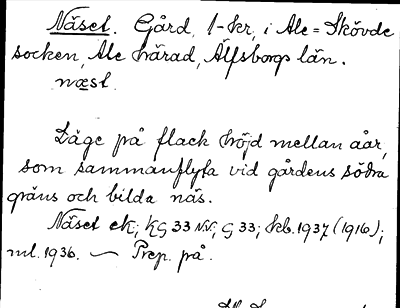 Näset. Gård, 1-kr, i Ale=Skövde
socken, Ale härad, Älfsborgs län.
næsl.
Läge på flack höjd mellan åar,
som sammanflyta vid gårdens södra
gräns och bilda näs.
Näset ek; KG 33 NV, G 33; kb. 1937 (1916);
ml. 1936. — Prep. på.